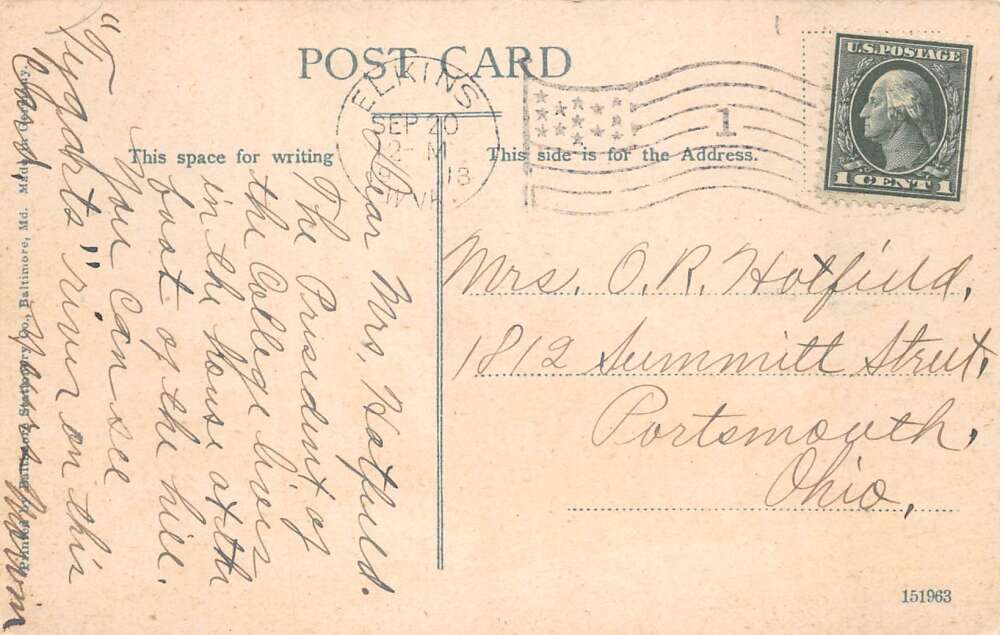 POST CARD
This space for writing
This side is for the Address.
ELKINS
SEP 20
W. VA.
1
U.S. POSTAGE
1 CENT 1
Dear Mrs. Hatfield.
The President of
the College lives
in the house at the
foot of the hill.
You can see
"Tygarts" river on this
Card.
Mrs. O. R. Hatfield,
1812 Summitt Street,
Portsmouth,
Ohio,
Printed by Baltimore Stationery Co., Baltimore, Md. Made in Germany.
151963